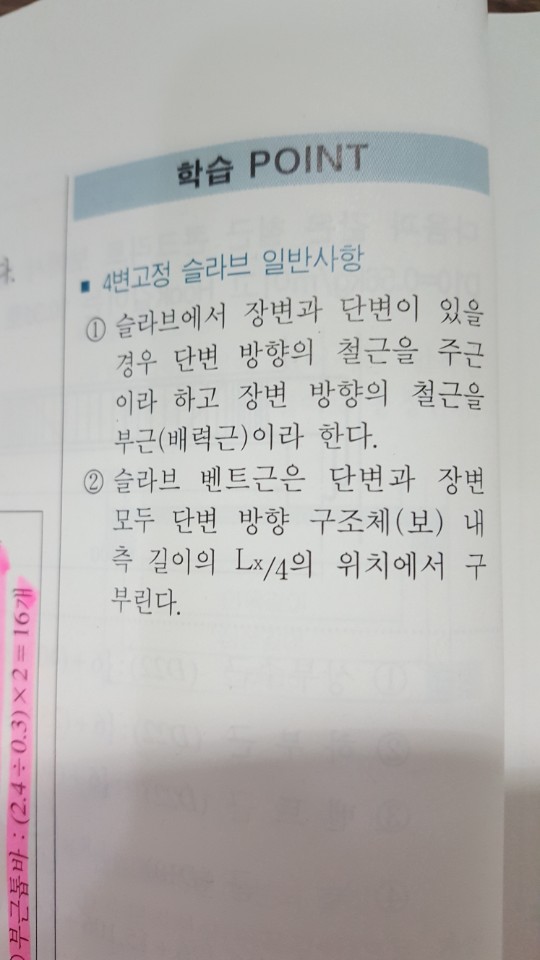 학습 POINT
■ 4변고정 슬라브 일반사항
① 슬라브에서 장변과 단변이 있을
경우 단변 방향의 철근을 주근
이라 하고 장변 방향의 철근을
부근(배력근)이라 한다.
② 슬라브 벤트근은 단변과 장변
모두 단변 방향 구조체(보) 내
측 길이의 Lx/4의 위치에서 구
부린다.
부근톱바 : (2.4÷0.3)×2=16개